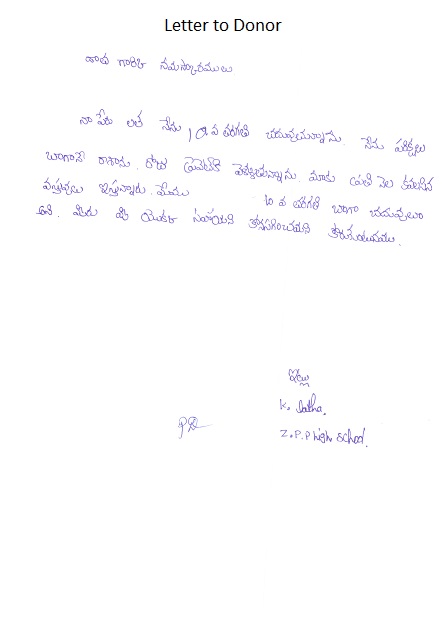 Letter to Donor
దాత గారికి నమస్కారములు
నా పేరు లత నేను 10వ తరగతి చదువుచున్నాను. నేను పరీక్షలు
బాగానే రాశాను. రోజు ప్రైవేట్‌కి వెళ్ళుతున్నాను. మాకు ప్రతి నెల కావలసిన
వస్తువులు ఇస్తున్నారు. మేము 10 వ తరగతి బాగా చదువుతాం
అని. మీరు మీ యొక్క సహాయంని కొనసాగించమని కోరుకుంటున్నాము.
ఇట్లు
K. latha.
Z.P.P high school.